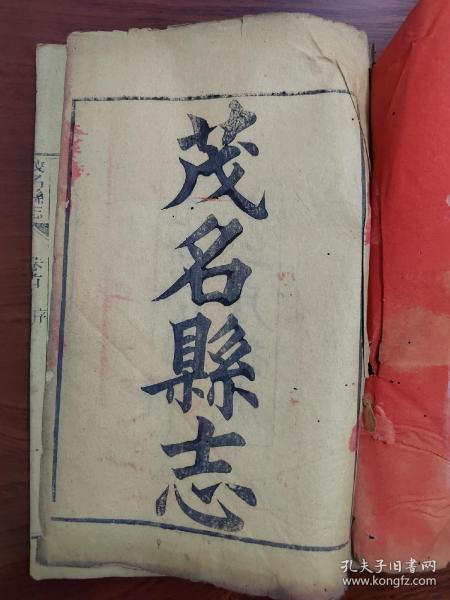 茂名縣志
茂名縣志 卷首 序
孔夫子旧书网
www.kongfz.com